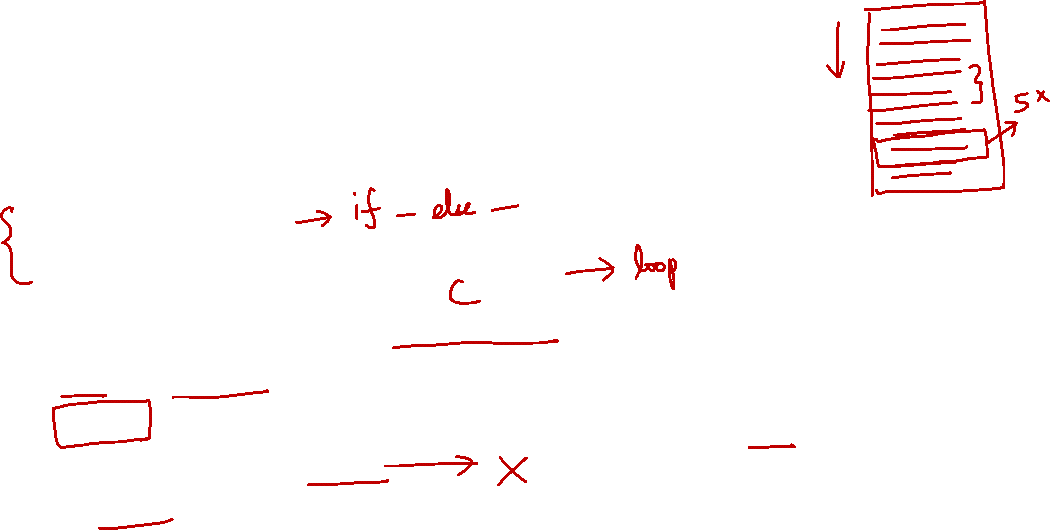 5x
→ if — else —
→ loop
C
→ X